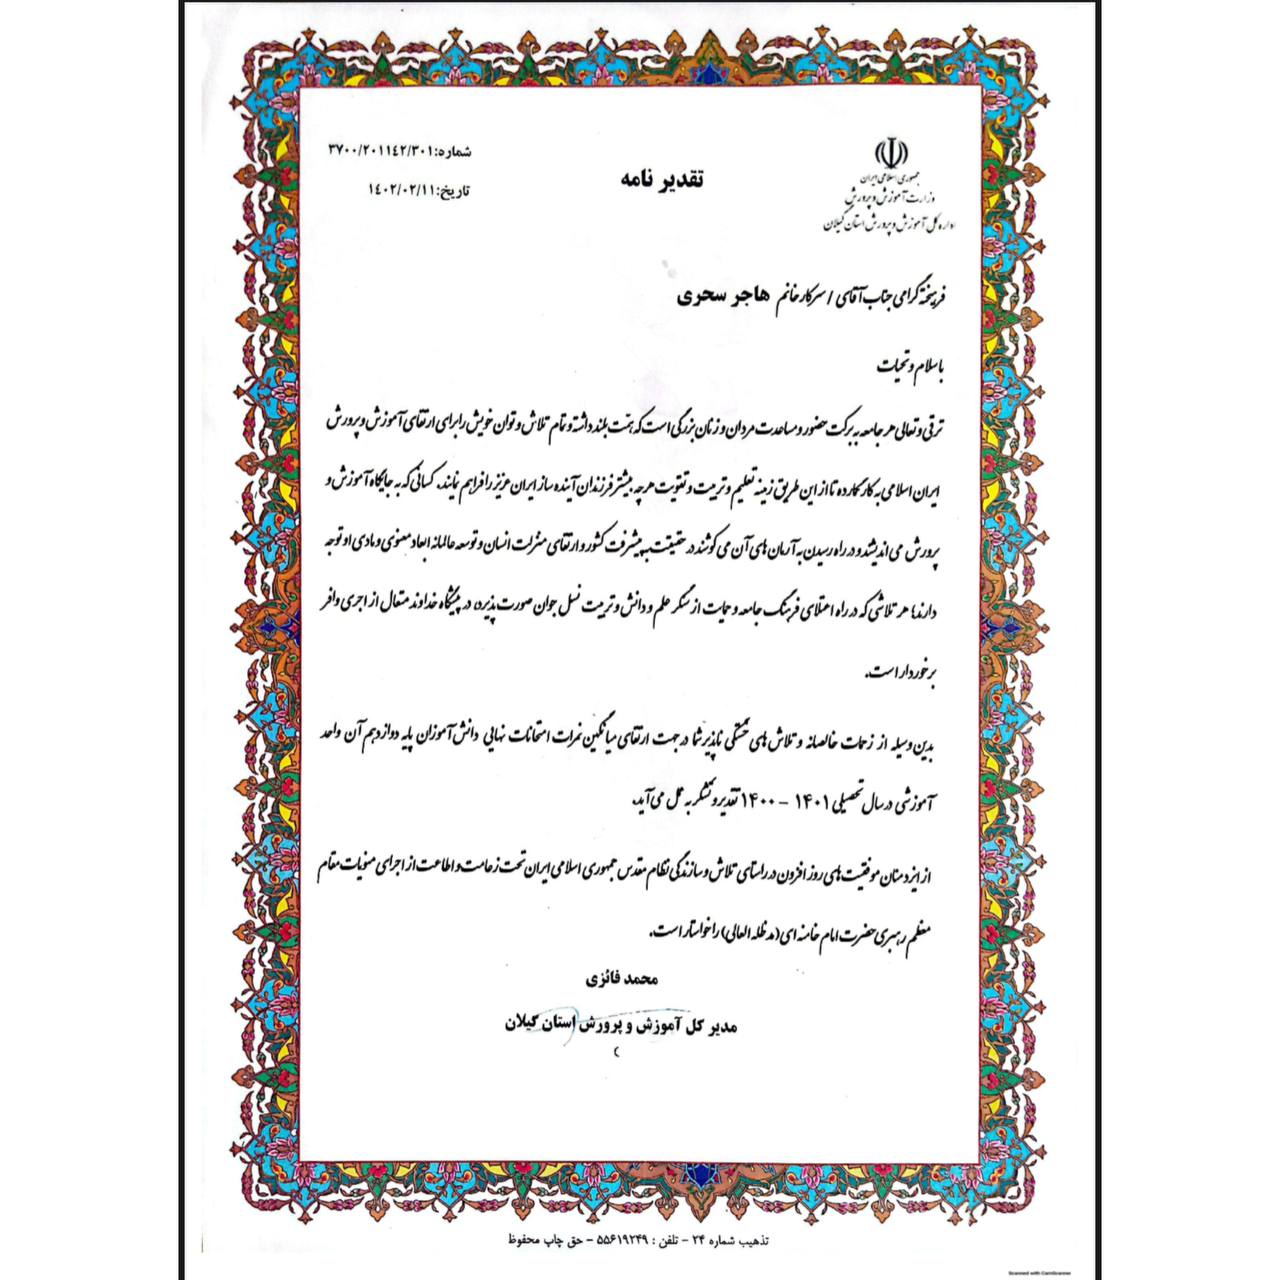 جمهوری اسلامی ایران
وزارت آموزش و پرورش
اداره کل آموزش و پرورش استان گیلان
تقدیر نامه
شماره:۳۷۰۰/۲۰۱۱۴۲/۳۰۱
تاریخ:۱۴۰۲/۰۲/۱۱
فرهیخته گرامی جناب آقای / سرکار خانم هاجر سحری
با سلام و تحیات
ترقی و تعالی هر جامعه به برکت حضور و مساعدت مردان و زنان بزرگی است که همت بلند داشته و تمام تلاش و توان خویش را برای ارتقای آموزش و پرورش
ایران اسلامی به کار گمارده تا از این طریق زمینه تعلیم و تربیت و تقویت هر چه بیشتر فرزندان آینده ساز ایران عزیز را فراهم نمایند. کسانی که به جایگاه آموزش و
پرورش می اندیشند و در راه رسیدن به آرمان های آن می کوشند در حقیقت به پیشرفت کشور و ارتقای منزلت انسان و توسعه عالمانه ابعاد معنوی و مادی او توجه
دارند؛ هر تلاشی که در راه اعتلای فرهنگ جامعه و حمایت از سنگر علم و دانش و تربیت نسل جوان صورت پذیرد، در پیشگاه خداوند متعال از اجری وافر
برخوردار است.
بدین وسیله از زحمات خالصانه و تلاش های خستگی ناپذیر شما در جهت ارتقای میانگین نمرات امتحانات نهایی دانش آموزان پایه دوازدهم آن واحد
آموزشی در سال تحصیلی ۱۴۰۱ - ۱۴۰۰ تقدیر و تشکر به عمل می آید.
از ایزد منان موفقیت های روز افزون در راستای تلاش و سازندگی نظام مقدس جمهوری اسلامی ایران تحت زعامت و اطاعت از اجرای منویات مقام
معظم رهبری حضرت امام خامنه ای(مد ظله العالی) را خواستار است.
محمد فائزی
مدیر کل آموزش و پرورش استان گیلان
تذهیب شماره ۲۴ - تلفن : ۵۵۶۱۹۲۴۹ - حق چاپ محفوظ
Scanned with CamScanner